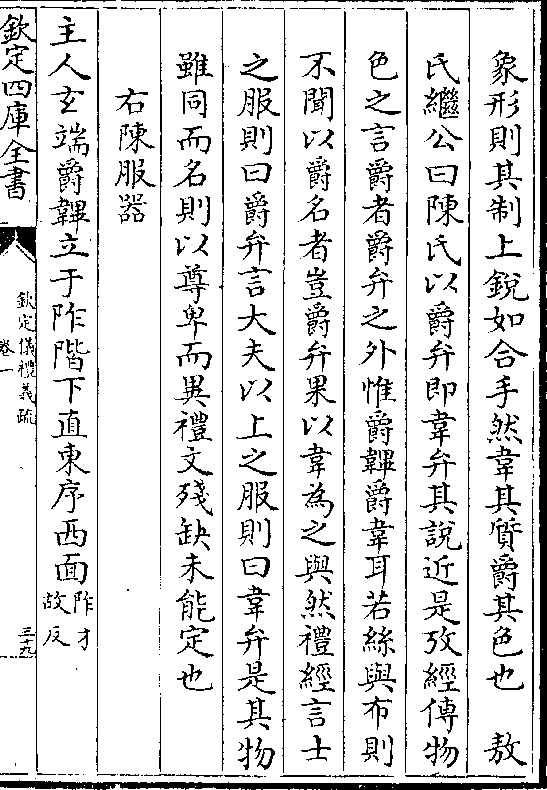 象形則其制上銳如合手然韋其質爵其色也　敖
氏繼公曰陳氏以爵弁即韋弁其說近是攷經傳物
色之言爵者爵弁之外惟爵韠爵韋耳若絲與布則
不聞以爵名者豈爵弁果以韋為之與然禮經言士
之服則曰爵弁言大夫以上之服則曰韋弁是其物
雖同而名則以尊卑而異禮文殘缺未能定也
右陳服器
主人玄端爵韠立于阼階下直東序西面阼才故反
欽定四庫全書
欽定儀禮義疏
卷一
三十九